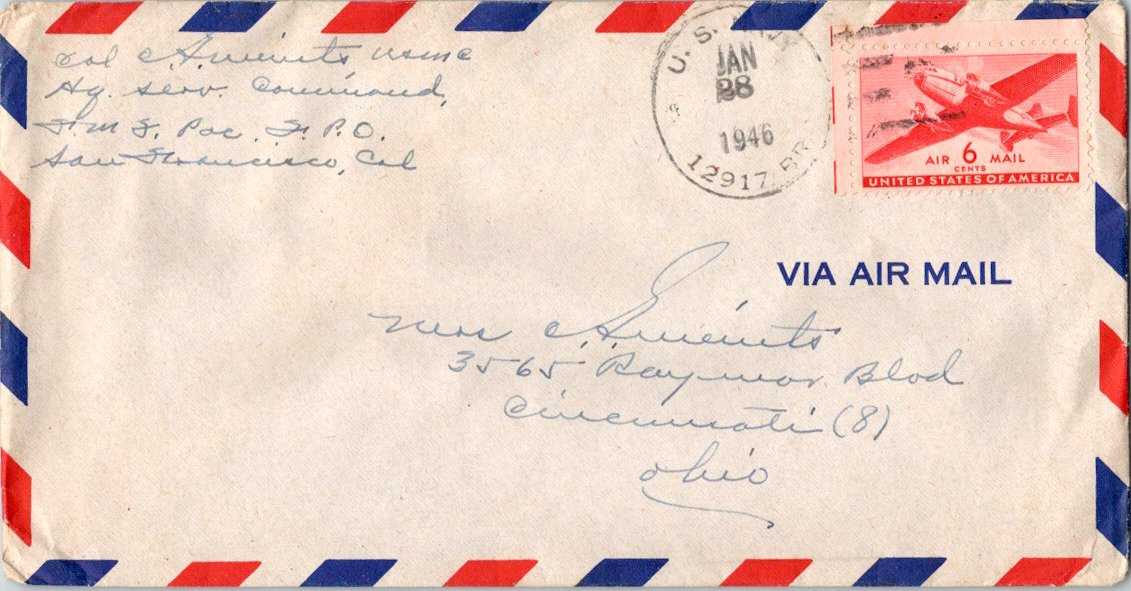 Col C. A. Wients USMC
Hq. Serv. Command,
F.M.F. Pac. F.P.O.
San Francisco, Cal
U. S. NAVY
JAN
28
1946
12917 BR.
AIR 6 MAIL
CENTS
UNITED STATES OF AMERICA
VIA AIR MAIL
Mrs C. A. Wients
3565 Raymar Blvd
Cincinnati (8)
Ohio